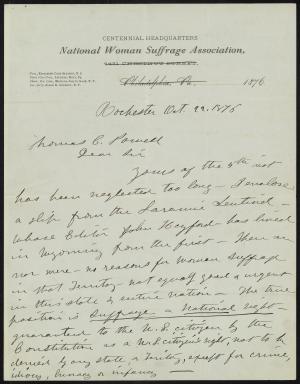 CENTENNIAL HEADQUARTERS
National Woman Suffrage Association,
1431 CHESTNUT STREET,
Philadelphia, Pa. 1876
Rochester Oct. 22. 1876
Thomas C. Powell
Dear Sir
Yours of the 9th inst
has been neglected too long - I enclose
a slip from the Laramie Sentinel -
whose Editor John Hayford - has lived
in Wyoming from the first - There are
nor were - no reasons for Woman Suffrage
in that Territory not equally good & urgent
in this state & entire nation - The true
position is Suffrage a National right -
guaranteed to the U.S. citizen by the
Constitution as a U.S. citizen's right, not to be
denied by any state or Territory, except for crime,
idiocy, lunacy or infancy -